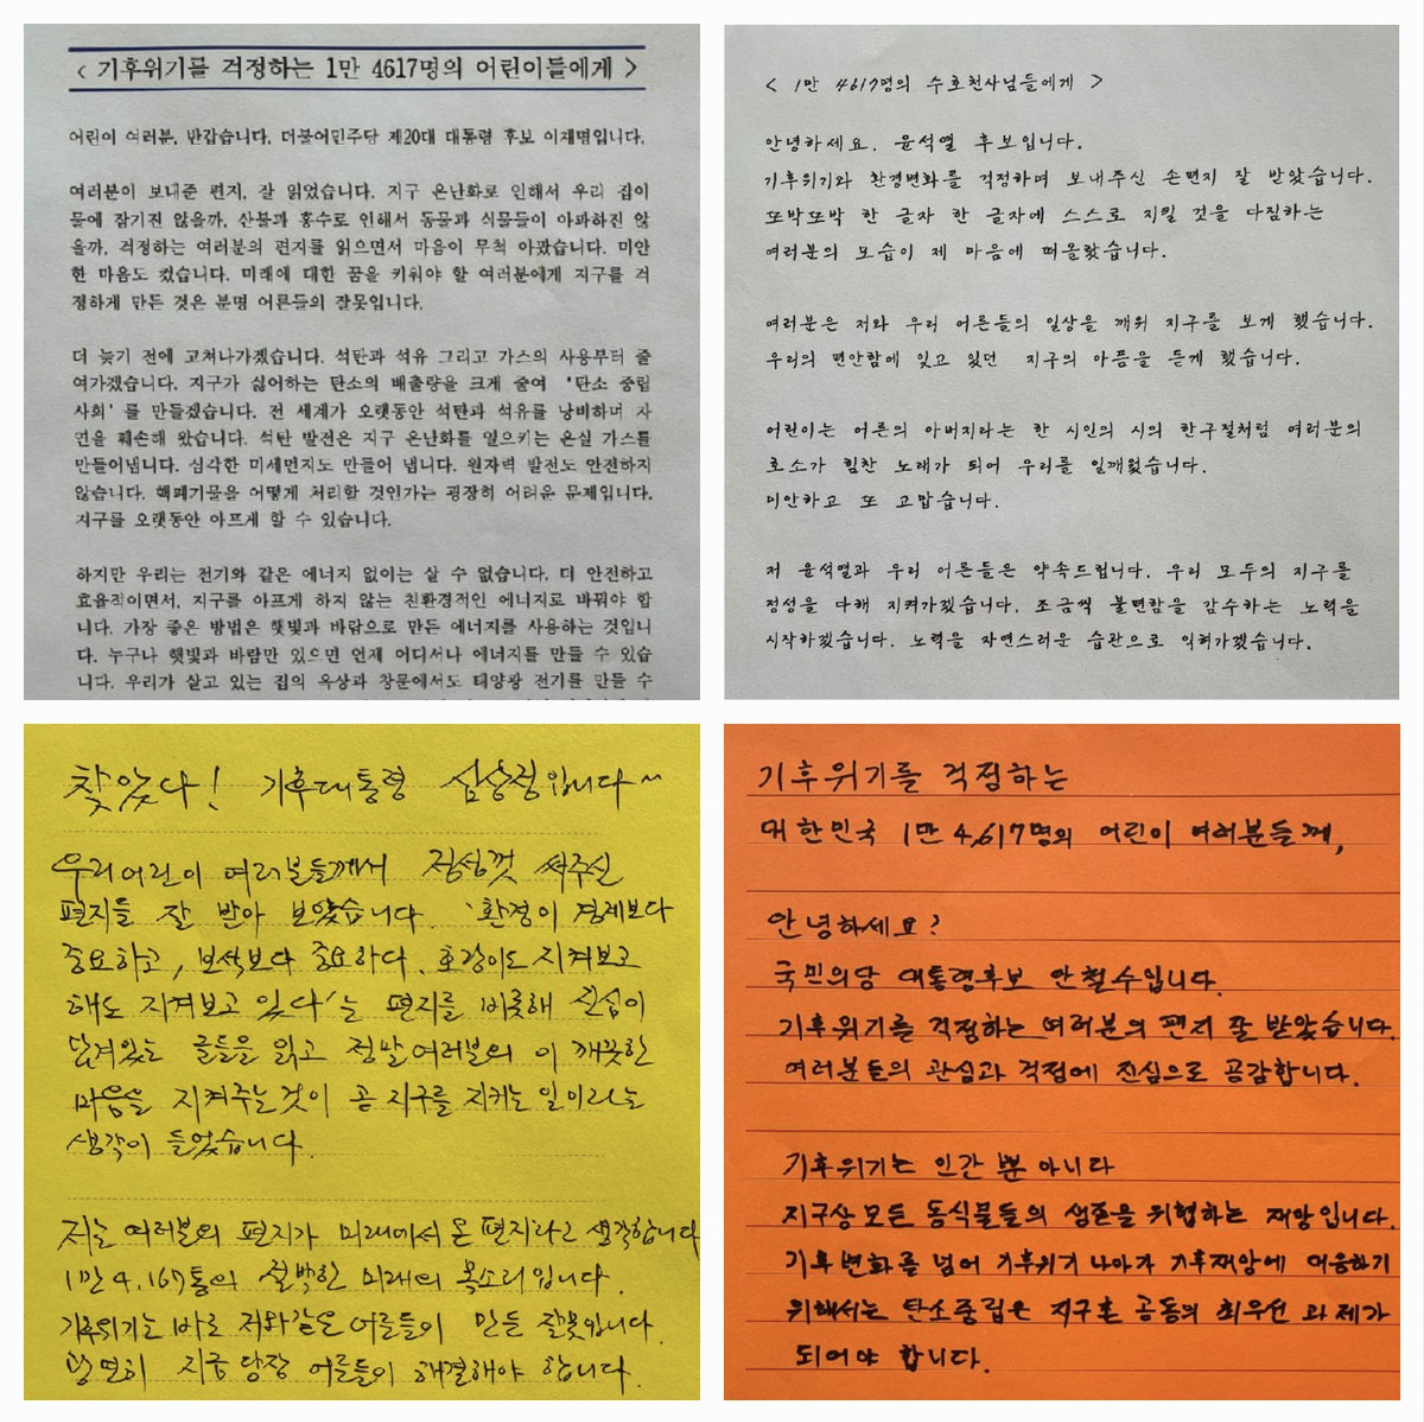 < 기후위기를 걱정하는 1만 4617명의 어린이들에게 >
어린이 여러분, 반갑습니다. 더불어민주당 제20대 대통령 후보 이재명입니다.
여러분이 보내준 편지, 잘 읽었습니다. 지구 온난화로 인해서 우리 집이
물에 잠기진 않을까, 산불과 홍수로 인해서 동물과 식물들이 아파하진 않
을까, 걱정하는 여러분의 편지를 읽으면서 마음이 무척 아팠습니다. 미안
한 마음도 컸습니다. 미래에 대한 꿈을 키워야 할 여러분에게 지구를 걱
정하게 만든 것은 분명 어른들의 잘못입니다.
더 늦기 전에 고쳐나가겠습니다. 석탄과 석유 그리고 가스의 사용부터 줄
여가겠습니다. 지구가 싫어하는 탄소의 배출량을 크게 줄여 '탄소 중립
사회' 를 만들겠습니다. 전 세계가 오랫동안 석탄과 석유를 낭비하며 자
연을 훼손해 왔습니다. 석탄 발전은 지구 온난화를 일으키는 온실 가스를
만들어냅니다. 심각한 미세먼지도 만들어 냅니다. 원자력 발전도 안전하지
않습니다. 핵폐기물을 어떻게 처리할 것인가는 굉장히 어려운 문제입니다.
지구를 오랫동안 아프게 할 수 있습니다.
하지만 우리는 전기와 같은 에너지 없이는 살 수 없습니다. 더 안전하고
효율적이면서, 지구를 아프게 하지 않는 친환경적인 에너지로 바꿔야 합
니다. 가장 좋은 방법은 햇빛과 바람으로 만든 에너지를 사용하는 것입니
다. 누구나 햇빛과 바람만 있으면 언제 어디서나 에너지를 만들 수 있습
니다. 우리가 살고 있는 집의 옥상과 창문에서도 태양광 전기를 만들 수
< 1만 4617명의 수호천사님들에게 >
안녕하세요. 윤석열 후보입니다.
기후위기와 환경변화를 걱정하며 보내주신 손편지 잘 받았습니다.
또박또박 한 글자 한 글자에 스스로 지킬 것을 다짐하는
여러분의 모습이 제 마음에 떠올랐습니다.
여러분은 저와 우리 어른들의 일상을 깨워 지구를 보게 했습니다.
우리의 편안함에 잊고 있던 지구의 아픔을 듣게 했습니다.
어린이는 어른의 아버지라는 한 시인의 시의 한구절처럼 여러분의
호소가 힘찬 노래가 되어 우리를 일깨웠습니다.
미안하고 또 고맙습니다.
저 윤석열과 우리 어른들은 약속드립니다. 우리 모두의 지구를
정성을 다해 지켜가겠습니다. 조금씩 불편함을 감수하는 노력을
시작하겠습니다. 노력을 자연스러운 습관으로 익혀가겠습니다.
찾았다! 기후대통령 심상정입니다~
우리 어린이 여러분들께서 정성껏 써주신
편지들 잘 받아 보았습니다. '환경이 경제보다
중요하고, 보석보다 중요하다. 호랑이도 지켜보고
해도 지켜보고 있다'는 편지를 비롯해 진심이
담겨있는 글들을 읽고 정말 여러분의 이 깨끗한
마음을 지켜주는 것이 곧 지구를 지키는 일이라는
생각이 들었습니다.
저는 여러분의 편지가 미래에서 온 편지라고 생각합니다
1만 4,167통의 절박한 미래의 목소리입니다.
기후위기는 바로 저와같은 어른들이 만든 잘못입니다.
당연히 지금 당장 어른들이 해결해야 합니다.
기후위기를 걱정하는
대한민국 1만 4,617명의 어린이 여러분들께,
안녕하세요?
국민의당 대통령후보 안철수입니다.
기후위기를 걱정하는 여러분의 편지 잘 받았습니다.
여러분들의 관심과 걱정에 진심으로 공감합니다.
기후위기는 인간 뿐 아니라
지구상 모든 동식물들의 생존을 위협하는 재앙입니다.
기후변화를 넘어 기후위기 나아가 기후재앙에 대응하기
위해서는 탄소중립은 지구촌 공동의 최우선 과제가
되어야 합니다.